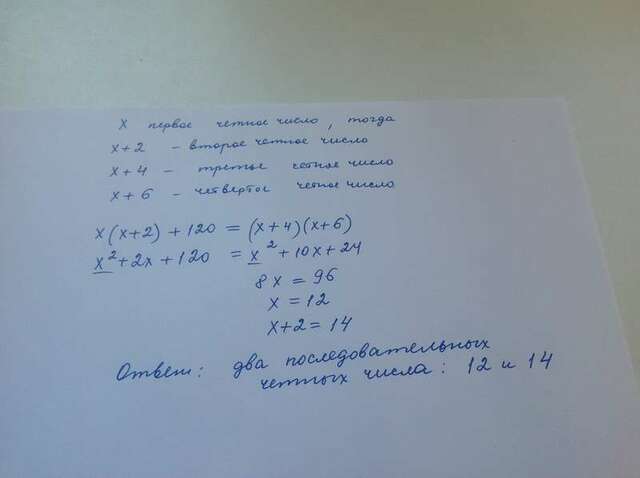 x первое четное число, тогда
x+2 - второе четное число
x+4 - третье четное число
x+6 - четвертое четное число
x(x+2)+120 = (x+4)(x+6)
x²+2x+120 = x²+10x+24
8x = 96
x = 12
x+2 = 14
Ответ: два последовательных
четных числа: 12 и 14